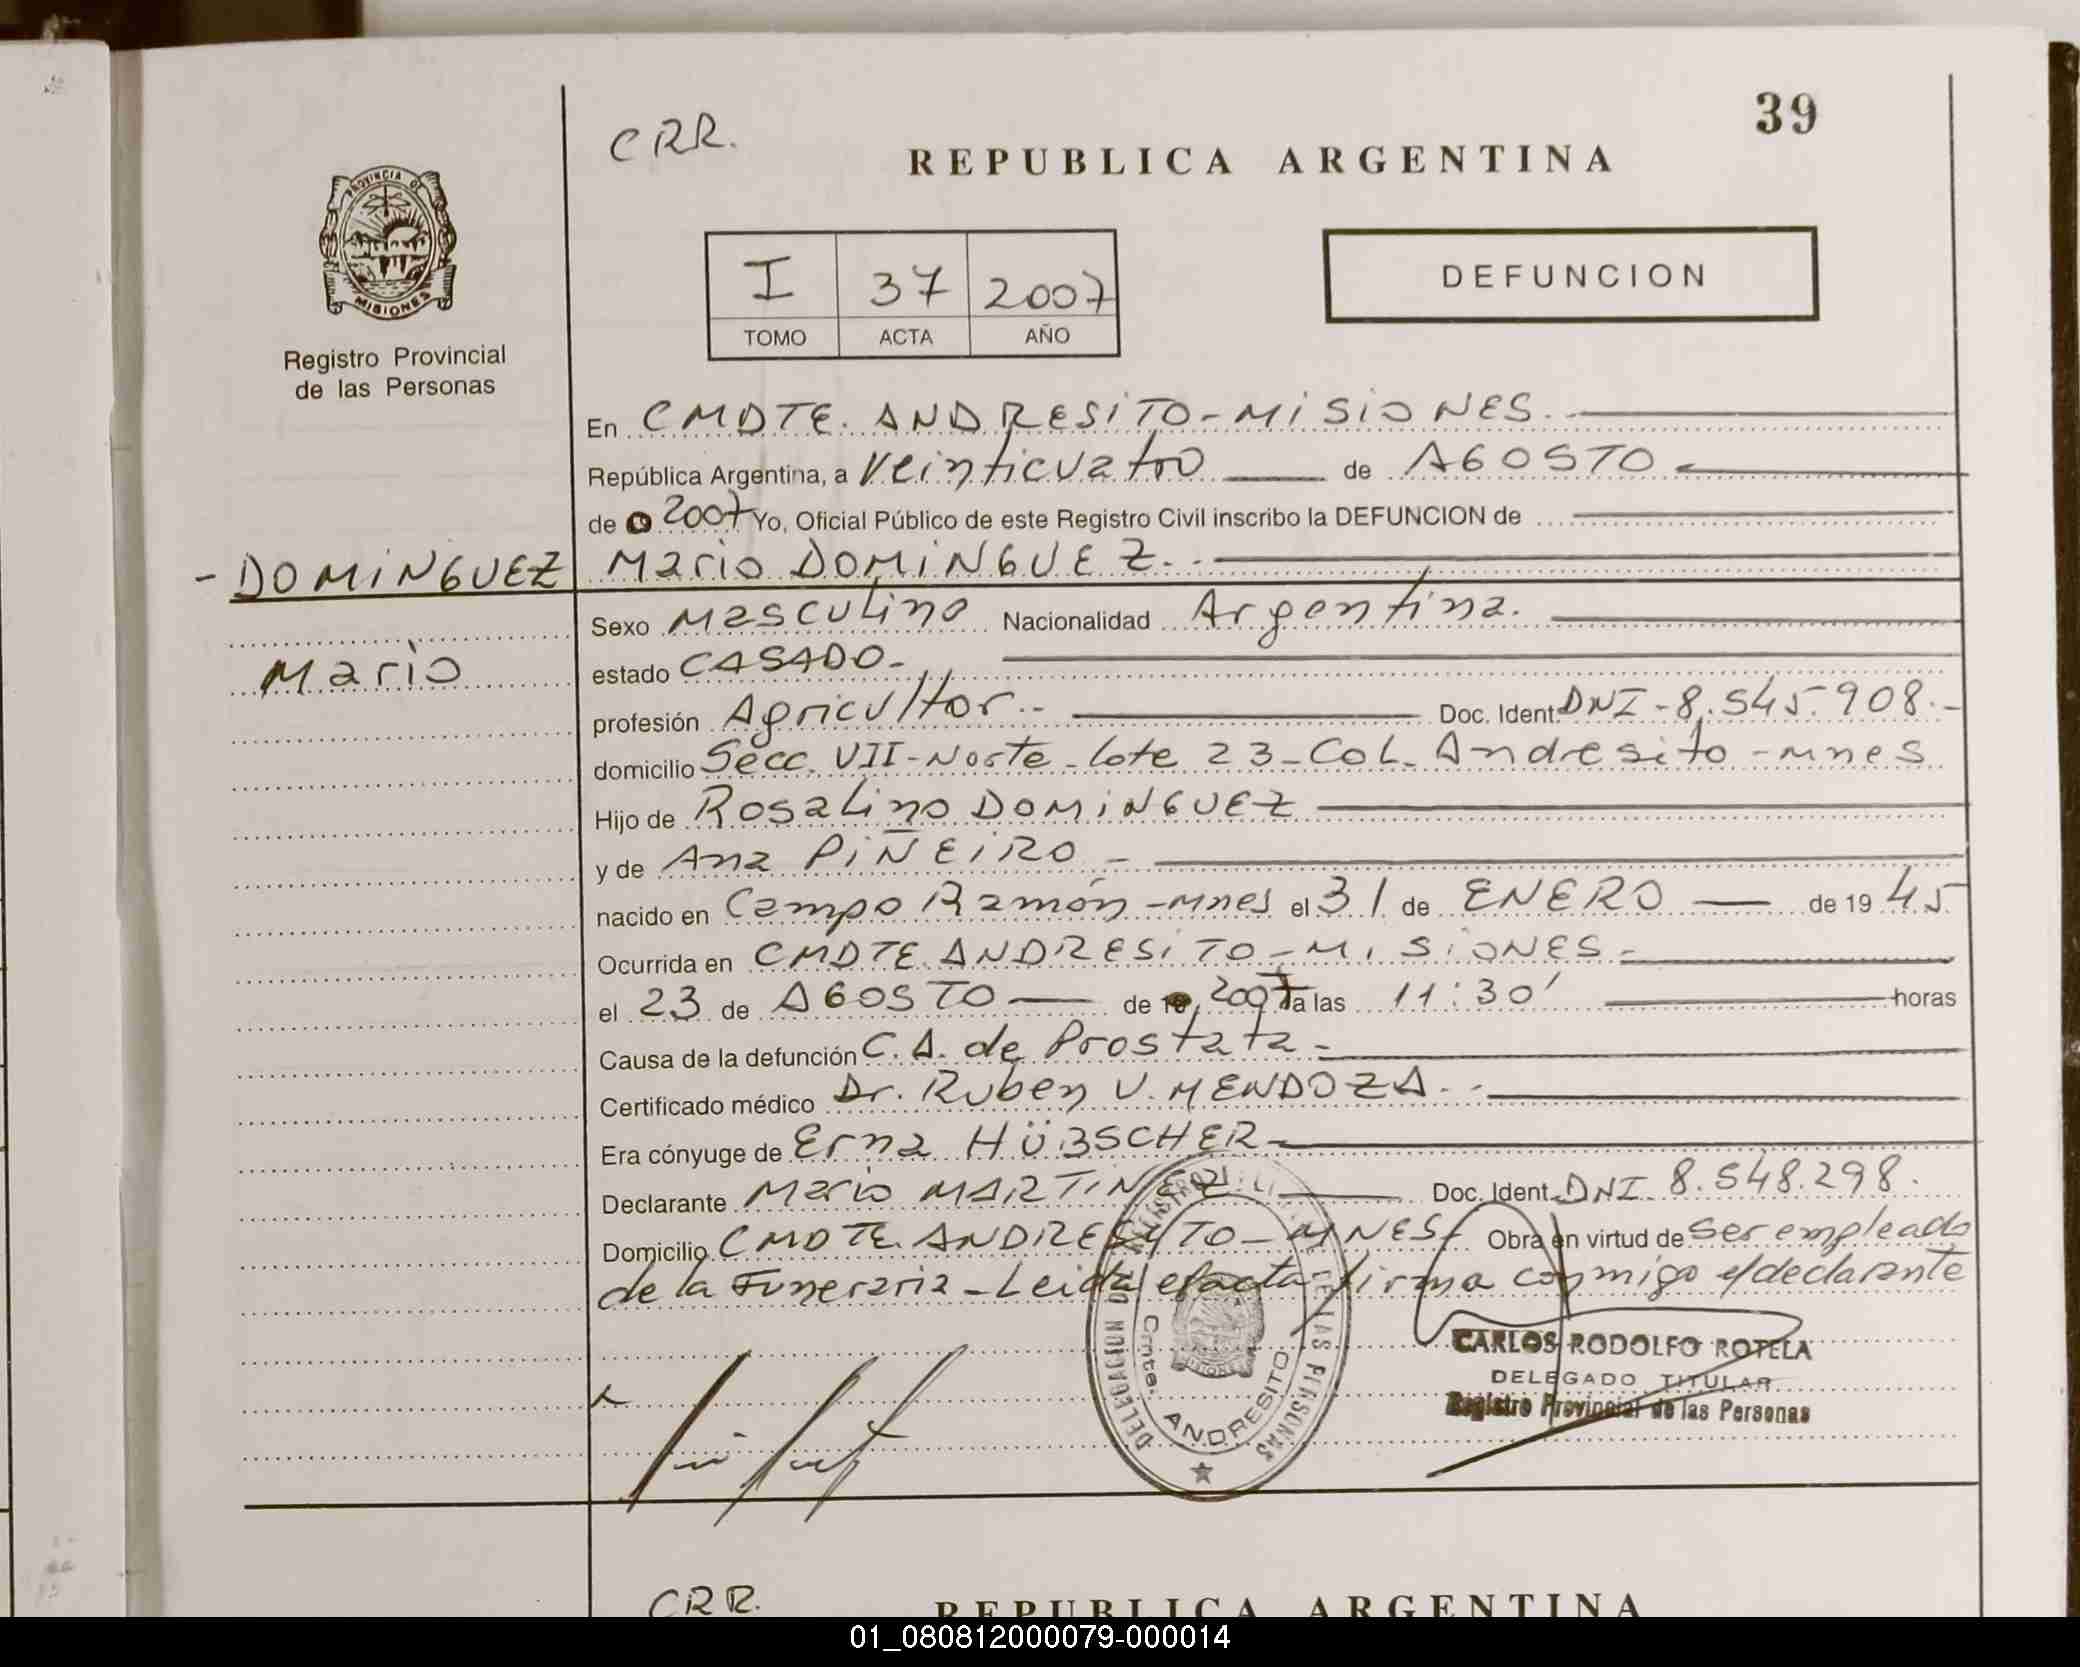 39
CRR.
REPUBLICA ARGENTINA
PROVINCIA DE
MISIONES
Registro Provincial
de las Personas
I 37 2007
TOMO ACTA AÑO
DEFUNCION
En CMDTE. ANDRESITO-MISIONES.
República Argentina, a Veinticuatro de AGOSTO
de 2007 Yo, Oficial Público de este Registro Civil inscribo la DEFUNCION de
- DOMINGUEZ Mario DOMINGUEZ.-
Sexo Masculino Nacionalidad Argentina.
Mario
estado CASADO-
profesión Agricultor.- Doc. Ident. DNI-8.545.908.-
domicilio Secc. VII-Norte-lote 23-Col. Andresito-mnes
Hijo de Rosalino DOMINGUEZ
y de Ana PIÑEIRO-
nacido en Campo Ramón-mnes el 31 de ENERO de 19 45
Ocurrida en CMDTE. ANDRESITO-MISIONES-
el 23 de AGOSTO de 19 2007 a las 11:30' horas
Causa de la defunción C.A. de Prostata-
Certificado médico Dr. Ruben V. MENDOZA.-
Era cónyuge de Erna HÜBSCHER-
Declarante Mario MARTINEZ Doc. Ident. DNI. 8.548.298.
Domicilio CMDTE. ANDRESITO-MNES- Obra en virtud de Ser empleado
de la Funeraria-Leida el acta firma conmigo el declarante
DELEGACION DEL REGISTRO DE LAS PERSONAS
Cmte. ANDRESITO
CARLOS RODOLFO ROTELA
DELEGADO TITULAR
Registro Provincial de las Personas
CRR.
REPUBLICA ARGENTINA
01_080812000079-000014